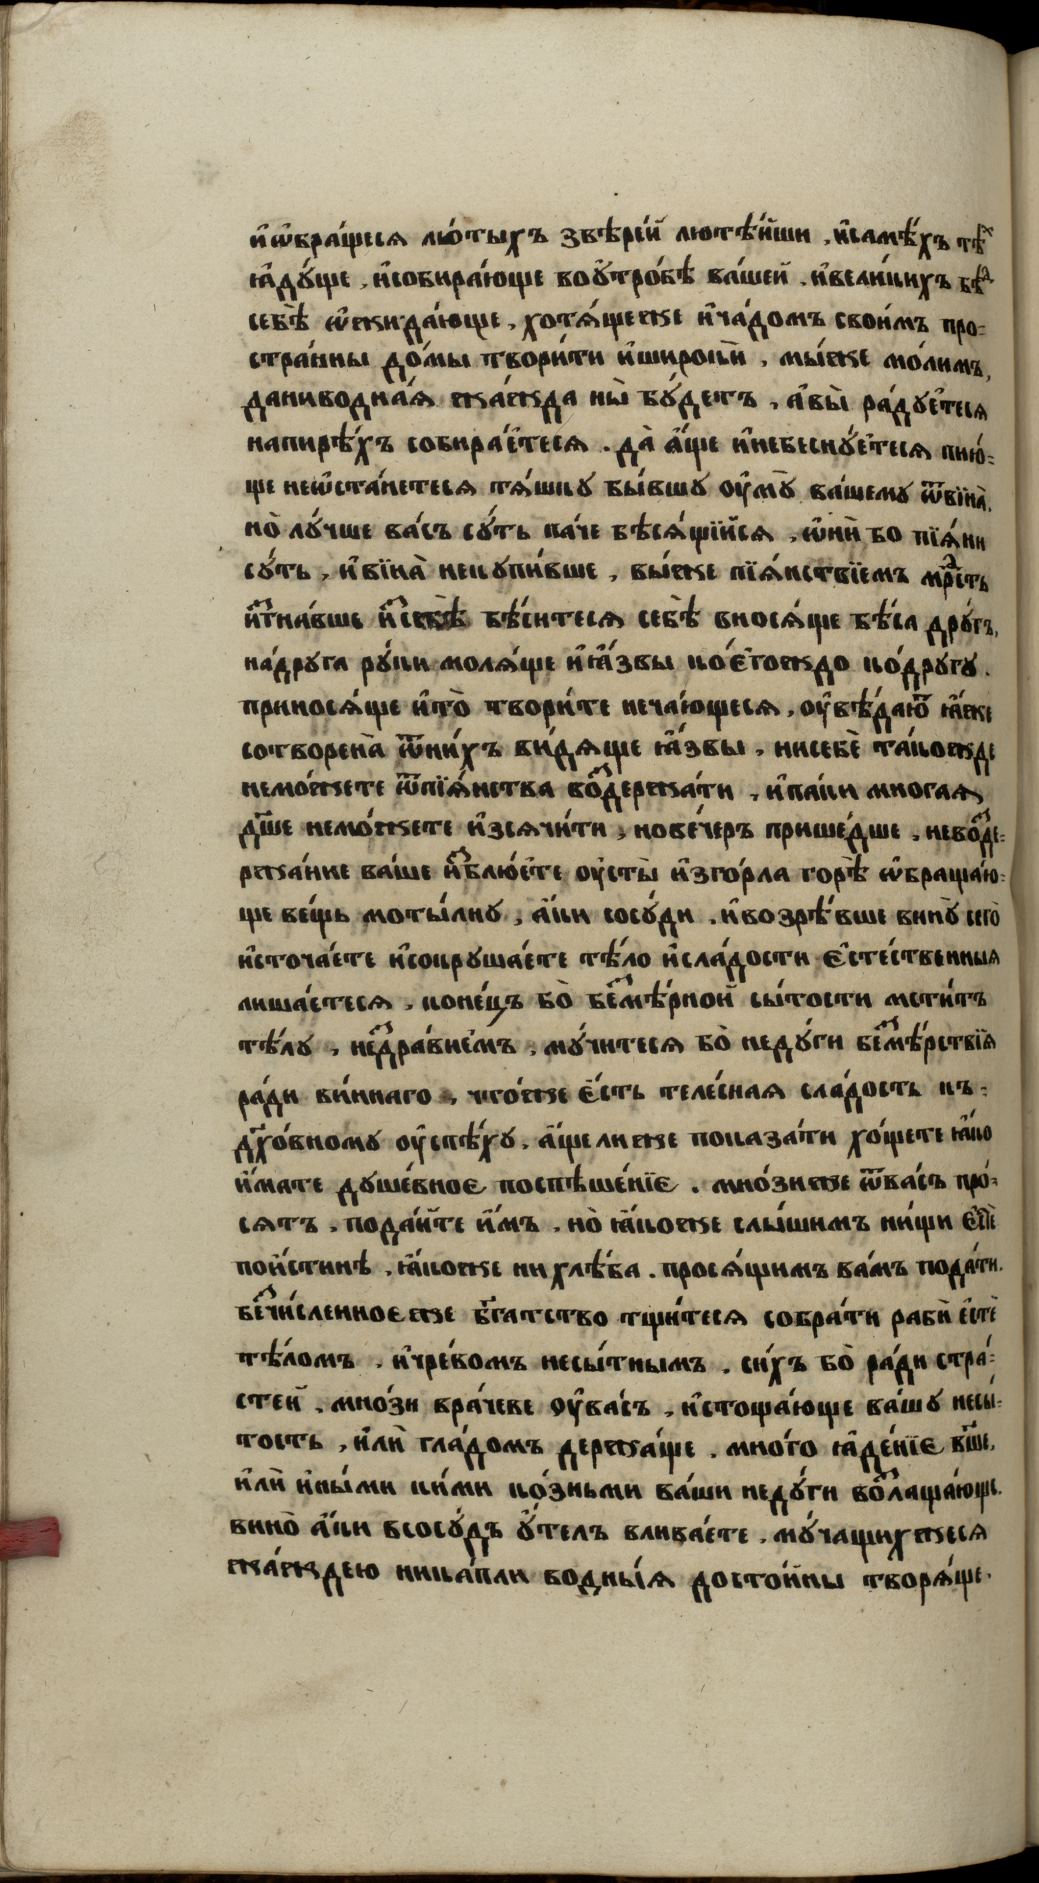 и҆ѡ҆бра́щеся лю́тыхъ звѣре́й лютѣ́йши, и҆самѣ́хъ тѣ́х
ꙗ҆ду́ще, и҆собира́юще воу҆тро́бѣ ва́шей. и҆вели́кихъ бѣ́д
себѣ̀ ѡ҆жида́юще, хотѧ́щеже и҆ча́домъ свои́мъ про-
стра́нны до́мы твори́ти и҆широки́, мы́же мо́лимъ,
данивоⷣнаѧ жа́жда ны̀ бу́детъ, а҆вы̀ ра́дуетесѧ
напирѣ́хъ собира́етесѧ. да̀ а҆́ще и҆небесну́етесѧ пию́-
ще неѡ҆ста́нетесѧ тѧ́шку бы́вшу оу҆му̀ ва́шему ѿвїна̀.
но̀ лу́чше ва́съ су́ть па́че бѣсѧ́щїйсѧ, ѡ҆ни̑ бо пїѧ́ни
су́ть, и҆вїна̀ некупи́вше, вы́же пїѧ́нствїемъ мⷣрⷭ҇ть
ѿгна́вше и҆себѐ бѣ́ситесѧ себѣ̀ вносѧ́ще бѣ́са дру́гъ,
на́друга ру́ки молѧ́ще и҆ꙗ҆́звы ко́егождо ко́другу.
приносѧ́ще и҆то̀ твори́те неча́ющесѧ, оу҆вѣ́даюⷮ ꙗ҆́же
сотворена̀ ѿни́хъ ви́дѧще ꙗ҆́звы, нисебѐ та́кожде
немо́жете ѿпїѧ́нства воⷥдержа́ти, и҆па́ки многаѧ
дⷩ҇ше немо́жете и҆зсѧчи́ти, новече́ръ прише́дше, невоⷥде-
ржа́ние ва́ше и҆ⷥблюе́те оу҆сты̀ и҆згорла горѣ̀ ѡ҆браща́ю-
ще ве́щь моты́лну, а҆́ки сосу́ди. и҆возрѣ́вше вину̀ сего̀
и҆сточа́ете и҆сокруша́ете тѣ́ло и҆сла́дости є҆сте́ственныѧ
лиша́етесѧ, коне́цъ бо̀ беⷥмѣ́рной сы́тости мсти́тъ
тѣ́лу, неⷥдра́вием̾ъ, му́читесѧ бо̀ неду́ги беⷥмѣ́рствїѧ
ра́ди ви́ннаго, что́же є҆́сть теле́снаѧ сла́дость къ-
дх҃о́вному оу҆спѣ́ху. а҆́щелиже показа́ти хо́щете ꙗ҆́ко
и҆́мате душе́вное поспѣше́нїе. мно́зиже ѿва́съ про́-
сѧтъ, пода́йте и҆̀мъ, но̀ ꙗ҆́коже слы́шимъ ни́щи є҆стѐ
пои́стинѣ, ꙗ҆́коже нихлѣ́ба. просѧ́щимъ ва́мъ пода́ти.
беⷥчи́сленноеже бг҃а́тство тщи́тесѧ собра́ти раби̑ є҆стѐ
тѣ́ломъ, и҆чре́вомъ несы́тнымъ, си́хъ бо̀ ра́ди стра́-
стей, мно́зи вра́чеве оу҆ва́съ, и҆стоща́юще ва́шу несы́-
тость, и҆лѝ гла́домъ держа́ще. мно́го ꙗ҆де́нїе вш҃е,
и҆лѝ и҆ны́ми ки́ми ко́зньми ва́ши неду́ги воⷥлаща́юще.
вино̀ а҆́ки всосу́дъ у҆́телъ влива́ете. му́чащихжесѧ
жа́ждею ника́пли водны́ѧ досто́йны творѧ́ще.